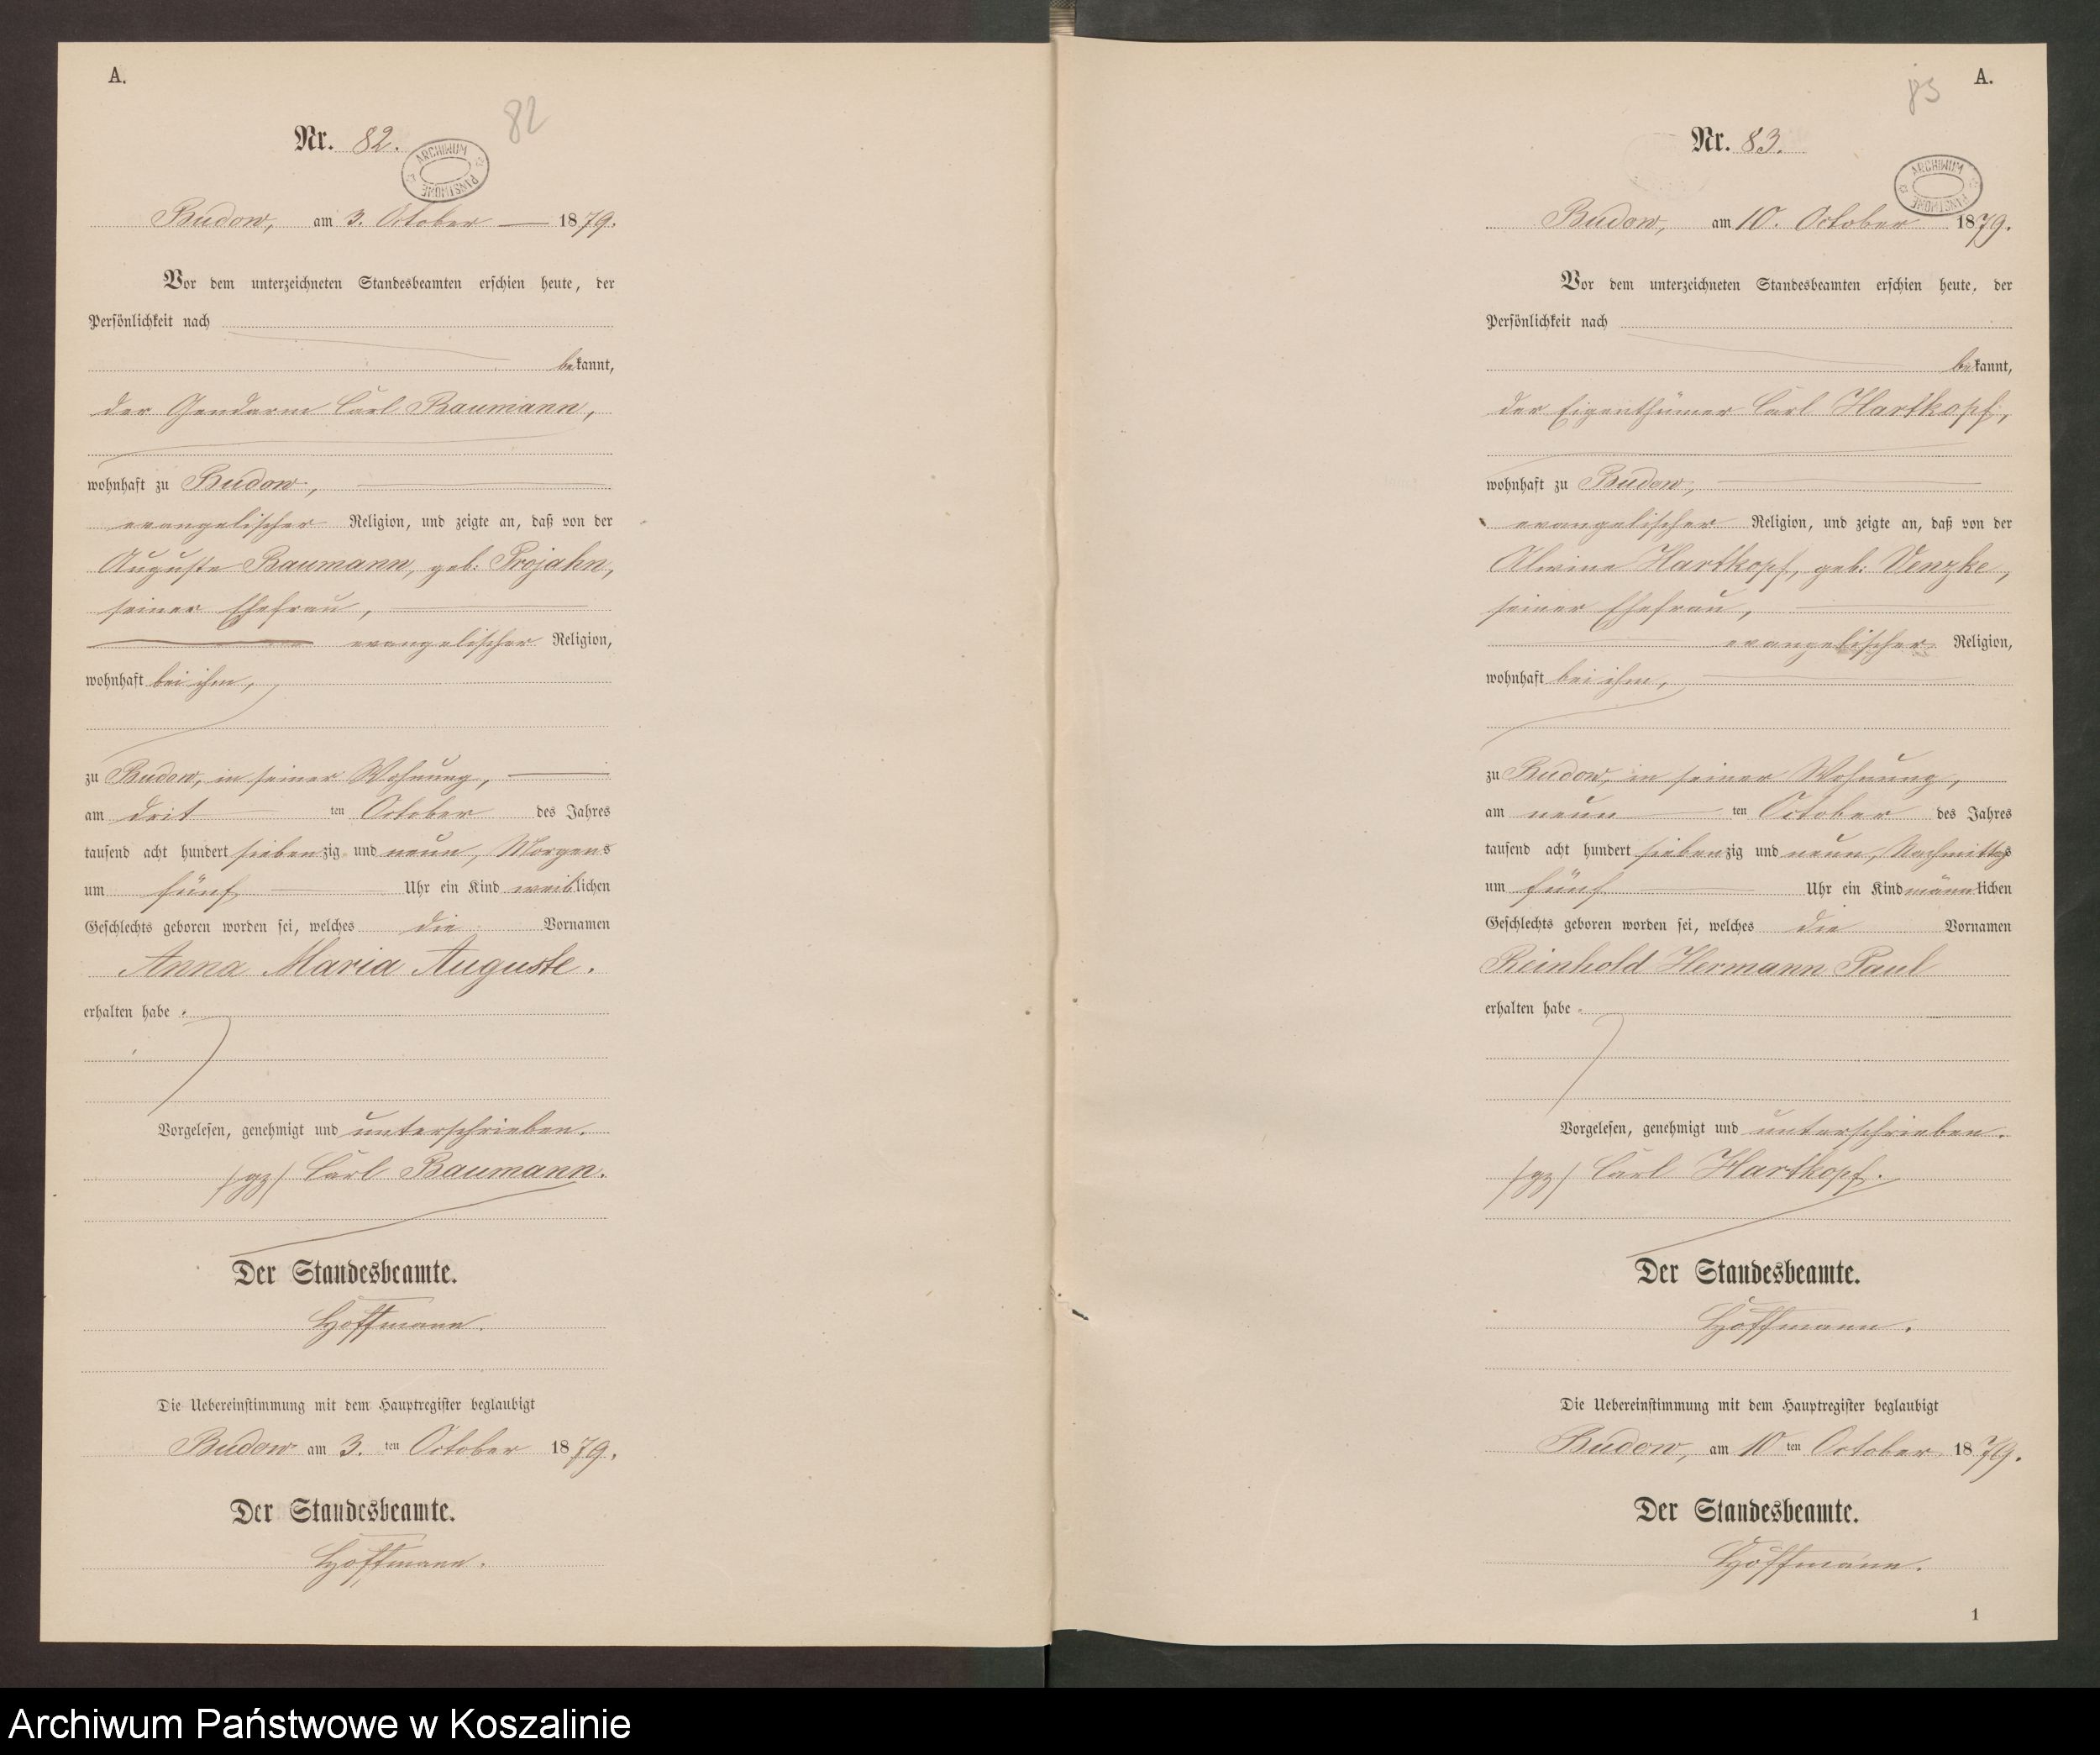 A.
82
Nr. 82.
ARCHIWUM PAŃSTWOWE
Budow, am 3. October 1879.
Vor dem unterzeichneten Standesbeamten erschien heute, der
Persönlichkeit nach
bekannt,
der Gendarm Carl Baumann,
wohnhaft zu Budow,
evangelischer Religion, und zeigte an, daß von der
Auguste Baumann, geb: Projahn,
seiner Ehefrau,
evangelischer Religion,
wohnhaft bei ihm,
zu Budow, in seiner Wohnung,
am drit ten October des Jahres
tausend acht hundert siebenzig und neun, Morgens
um fünf Uhr ein Kind weiblichen
Geschlechts geboren worden sei, welches die Vornamen
Anna Maria Auguste.
erhalten habe.
Vorgelesen, genehmigt und unterschrieben.
/gz/ Carl Baumann.
Der Standesbeamte.
Hoffmann.
Die Uebereinstimmung mit dem Hauptregister beglaubigt
Budow am 3. ten October 1879.
Der Standesbeamte.
Hoffmann.
A.
83
Nr. 83.
ARCHIWUM PAŃSTWOWE
Budow, am 10. October 1879.
Vor dem unterzeichneten Standesbeamten erschien heute, der
Persönlichkeit nach
bekannt,
der Eigenthümer Carl Hartkopf,
wohnhaft zu Budow,
evangelischer Religion, und zeigte an, daß von der
Alwine Hartkopf, geb: Venzke,
seiner Ehefrau,
evangelischer Religion,
wohnhaft bei ihm,
zu Budow, in seiner Wohnung,
am neun ten October des Jahres
tausend acht hundert siebenzig und neun, Nachmittags
um fünf Uhr ein Kind männlichen
Geschlechts geboren worden sei, welches die Vornamen
Reinhold Hermann Paul
erhalten habe.
Vorgelesen, genehmigt und unterschrieben.
/gz/ Carl Hartkopf.
Der Standesbeamte.
Hoffmann.
Die Uebereinstimmung mit dem Hauptregister beglaubigt
Budow, am 10 ten October 1879.
Der Standesbeamte.
Hoffmann.
1
Archiwum Państwowe w Koszalinie